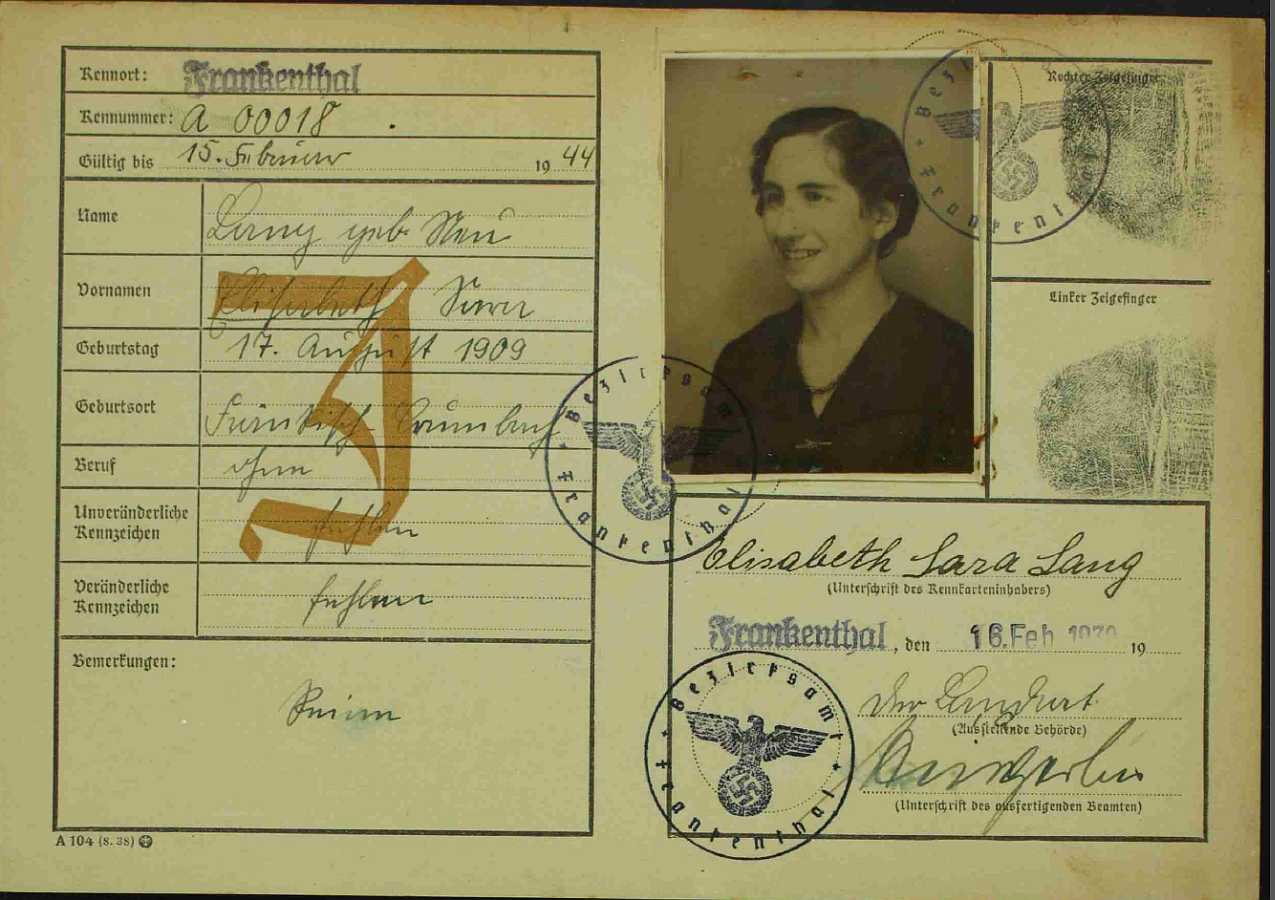 Kennort: Frankenthal
Kennummer: A 00018
Gültig bis 15. Februar 1944
Name Lang geb. Neu
Vornamen Elisabeth Sara
Geburtstag 17. August 1909
Geburtsort Fränkisch-Crumbach
Beruf ohne
Unveränderliche Kennzeichen fehlen
Veränderliche Kennzeichen fehlen
Bemerkungen: Keine
A 104 (8. 38)
J
Rechter Zeigefinger
Linker Zeigefinger
Bezirksamt Frankenthal
Bezirksamt Frankenthal
Elisabeth Sara Lang
(Unterschrift des Kennkarteninhabers)
Frankenthal, den 16. Feb 1939 19
Der Landrat
(Ausstellende Behörde)
(Unterschrift des ausfertigenden Beamten)
Bezirksamt Frankenthal